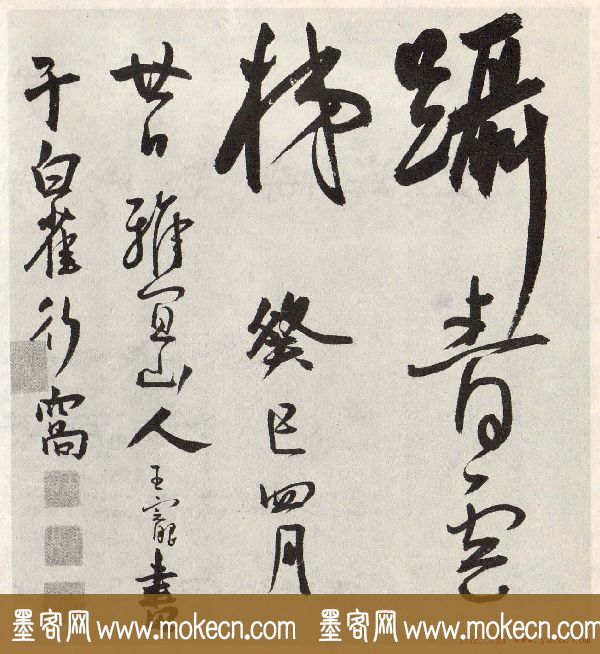 躡青雲
梯 癸巳四月
廿日 雅宜山人王寵書
于白雀行窩
墨客网 www.mokecn.com 墨客网 www.mokecn.com